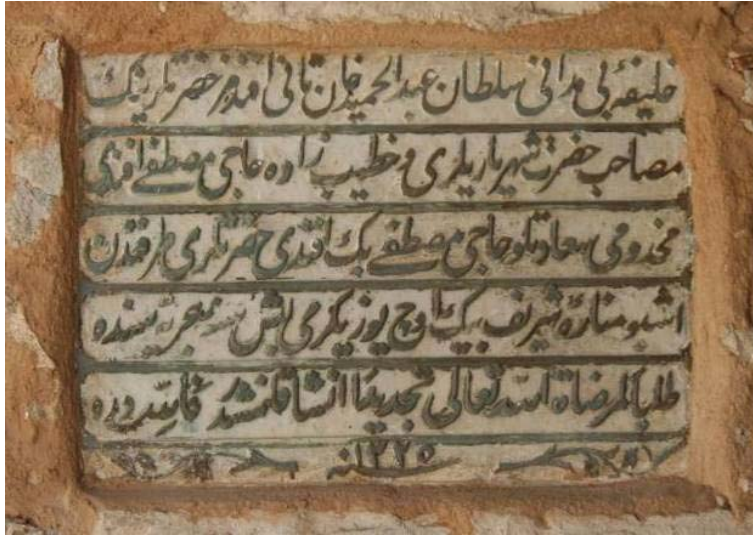 خليفۀ بی مدانی سلطان عبد الحميد خان ثانی افندمز حضرتلرينك
مصاحب حضرت شهرياريلری و خطيب زاده حاجی مصطفی افندی
مخدومی سعادتلو حاجی مصطفی بك افندی حضرتلری طرفندن
اشبو منارۀ شريف بيك اوچ يوز يكرمی بش سنه هجريه سنده
طلبا لمرضاة الله تعالی تجديدا انشا قلنمشدر
سنه ١٣٢٥